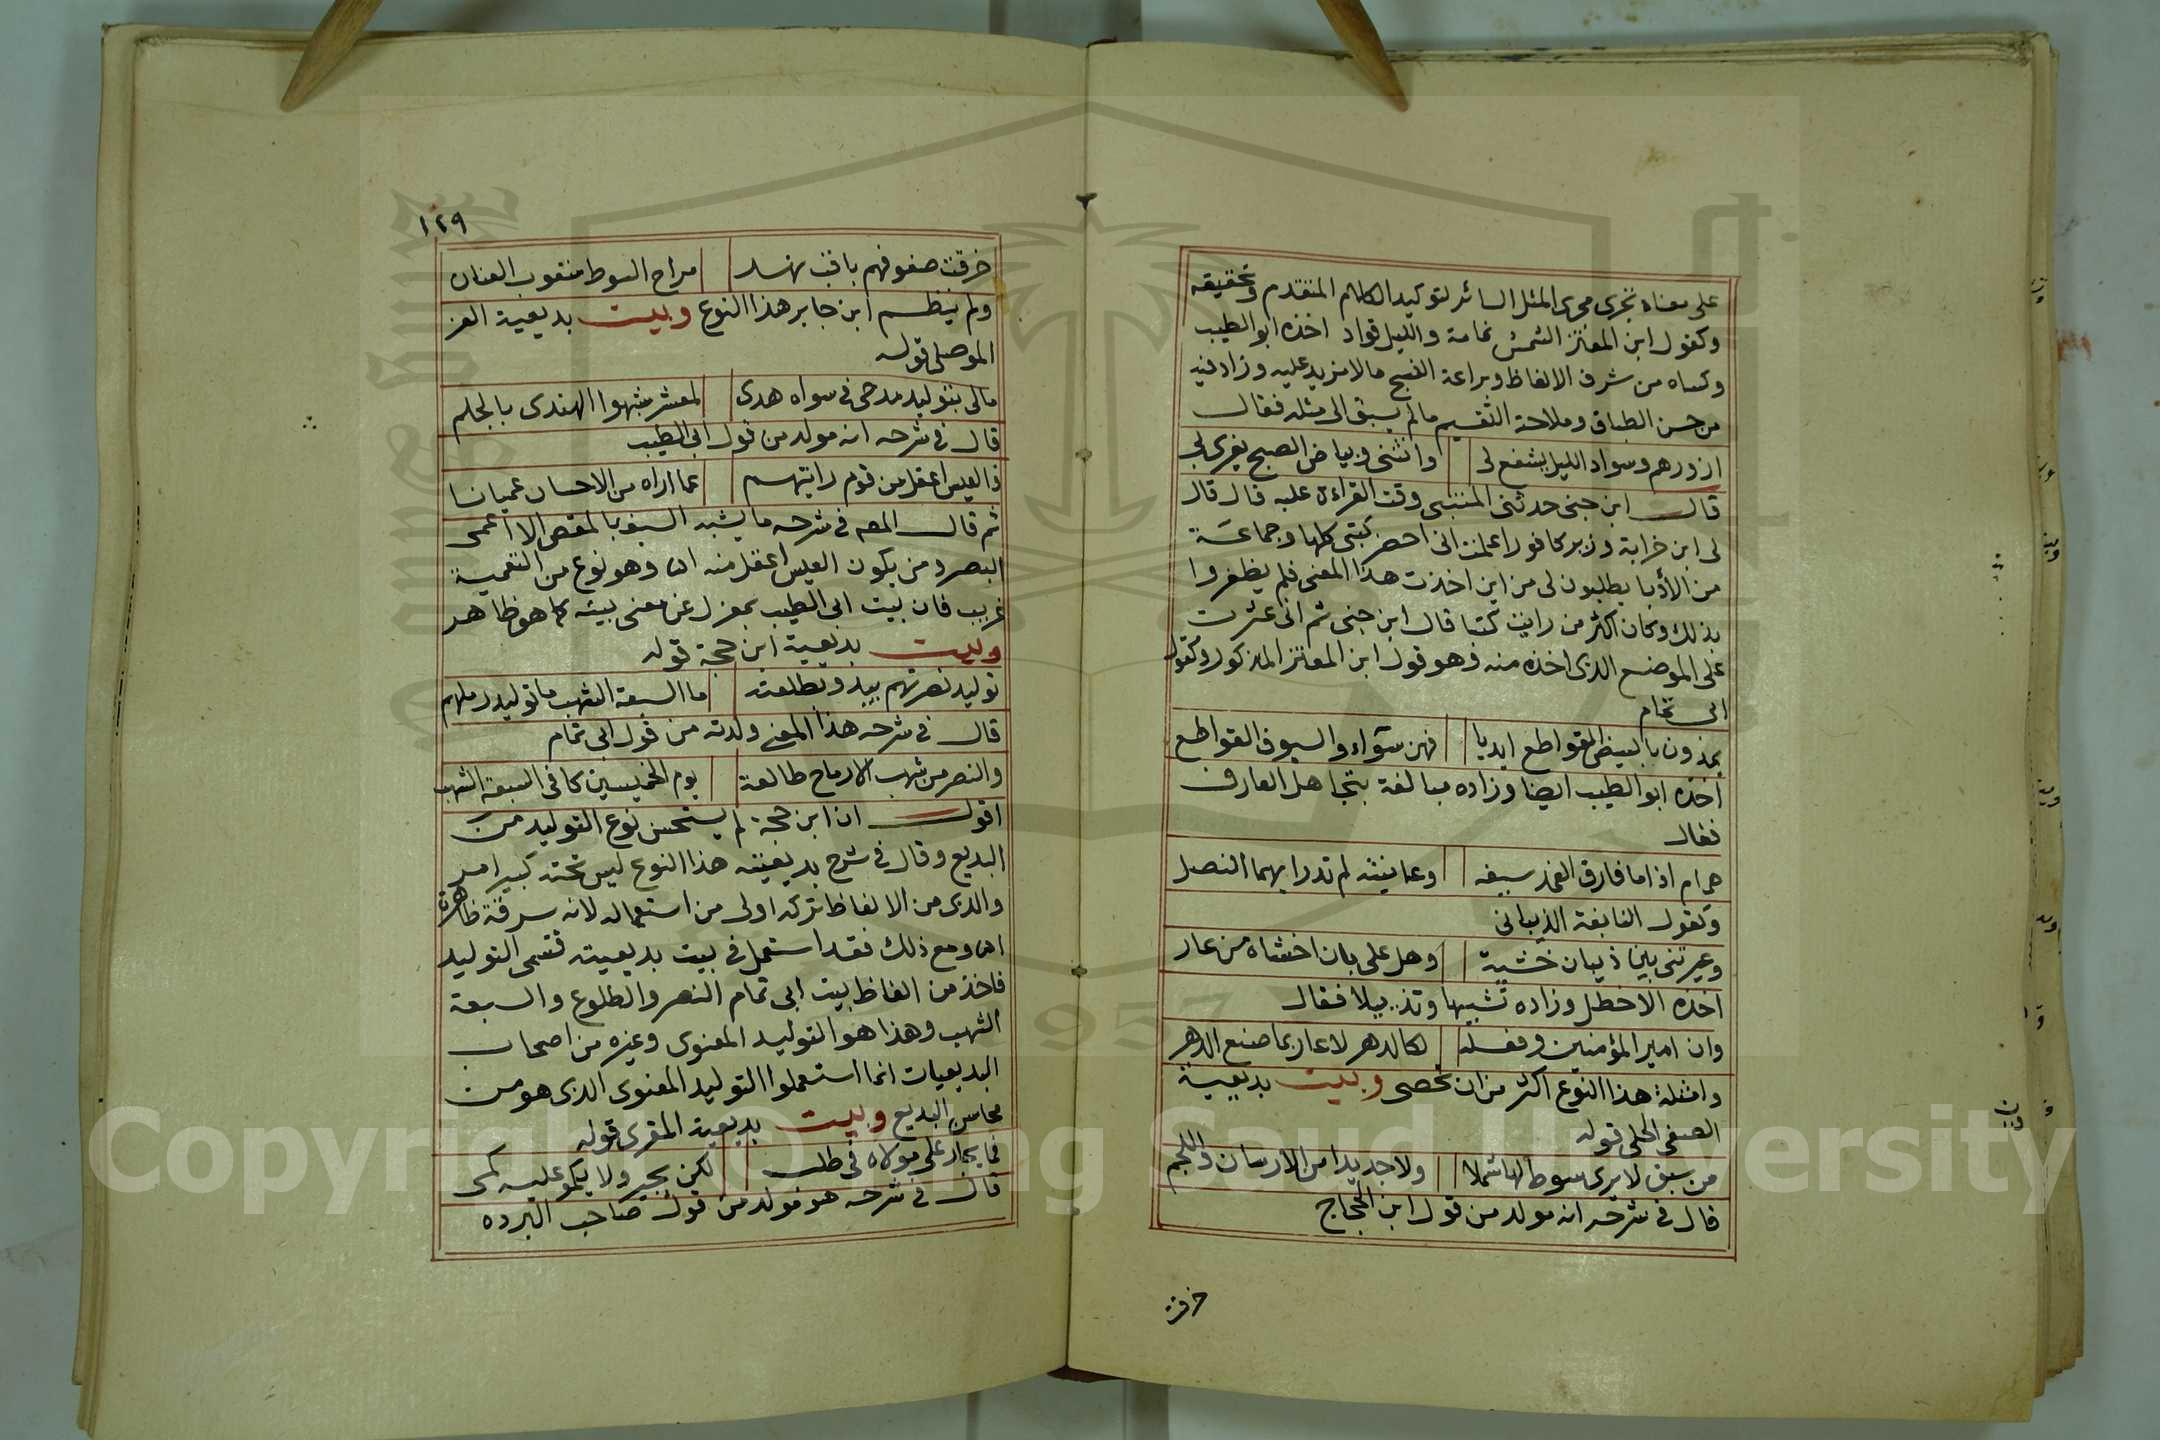 على معناه تجرى مجرى المثل السائر لتوكيد الكلام المتقدم وتحقيقه
وكقول ابن المعتز الشمس نمامة والليل قواد اخذه ابو الطيب
وكساه من شرف الالفاظ وبراعة النسج مالا مزيد عليه وزاد فيه
من حسن الطباق وملاحة التقسيم مالم يسبق الى مثله فقال
ازورهم وسواد الليل يشفع لى وانثنى وبياض الصبح يغرى بى
قال ابن جنى حدثنى المتنبى وقت القراءة عليه قال قال
لى ابن خرابة وزير كافور اعلمت انى احضرت كتبى كلها وجماعة
من الأدبا يطلبون لى من اين اخذت هذا المعنى فلم يظفروا
بذلك وكان اكثر من رايت كتبا قال ابن جنى ثم انى عثرت
على الموضع الذى اخذه منه وهو قول ابن المعتز المذكور وكقول
ابى تمام
يمدون بالبيض القواطع ايديا فهن سواء والسيوف القواطع
اخذه ابو الطيب ايضا وزاده مبالغة بتجاهل العارف
فقال
همام اذا ما فارق الغمد سيفه وعاينته لم تدر ايهما النصل
وكقول النابغة الذبيانى
وعيرتنى بنو ذبيان خشية وهل على بان اخشاه من عار
اخذه الاخطل وزاده تشبيها وتذييلا فقال
وان امير المؤمنين وفعله لكالدهر لا عار بما صنع الدهر
وامثلة هذا النوع اكثر من ان تحصى وبيت بديعية
الصفى الحلى قوله
من سبق لا يرى سوط لها شملا ولا جديدا من الارسان واللجم
قال فى شرحه انه مولد من قول ابن الحجاج
خرقت
١٢٩
خرقت صفوفهم باقب نهد مراح السوط متعوب العنان
ولم ينظم ابن جابر هذا النوع وبيت بديعية العز
الموصلى قوله
مالى بتوليد مدحى فى سواه هدى لمعشر شبهوا الهندى بالجلم
قال فى شرحه انه مولد من قول ابى الطيب
فالعيس اعقل من قوم رايتهم عما اراه من الاحسان عميانا
ثم قال المص فى شرحه ما يشبه السيف بالمقص الا اعمى
البصر ومن يكون العيس اعقل منه اه وهو نوع من التعمية
غريب فان بيت ابى الطيب بمعزل عن معنى بيته كما هو ظاهر
وبيت بديعية ابن حجة قوله
توليد نصرتهم يبدو بطلعته ما السبعة الشهب ما توليد رملهم
قال فى شرحه هذا المعنى ولدته من قول ابى تمام
والنصر من شهب الارماح طالعة يوم الخميسين لا فى السبعة الشهب
اقول ان ابن حجة لم يستحسن نوع التوليد من
البديع وقال فى شرح بديعيته هذا النوع ليس تحته كبير امر
والذى من الالفاظ تركه اولى من استعماله لانه سرقة ظاهرة
اه ومع ذلك فقد استعمل فى بيت بديعيته قسمى التوليد
فاخذ من الفاظ بيت ابى تمام النصر والطلوع والسبعة
الشهب وهذا هو التوليد المعنوى وغيره من اصحاب
البديعيات انما استعملوا التوليد المعنوى الذى هو من
محاسن البديع وبيت بديعية المقرى قوله
فما يجار على مولاه فى طلب لكن يجير ولا يكمو عليه كمى
قال فى شرحه هو مولد من قول صاحب البرده
Copyright © King Saud University
1957